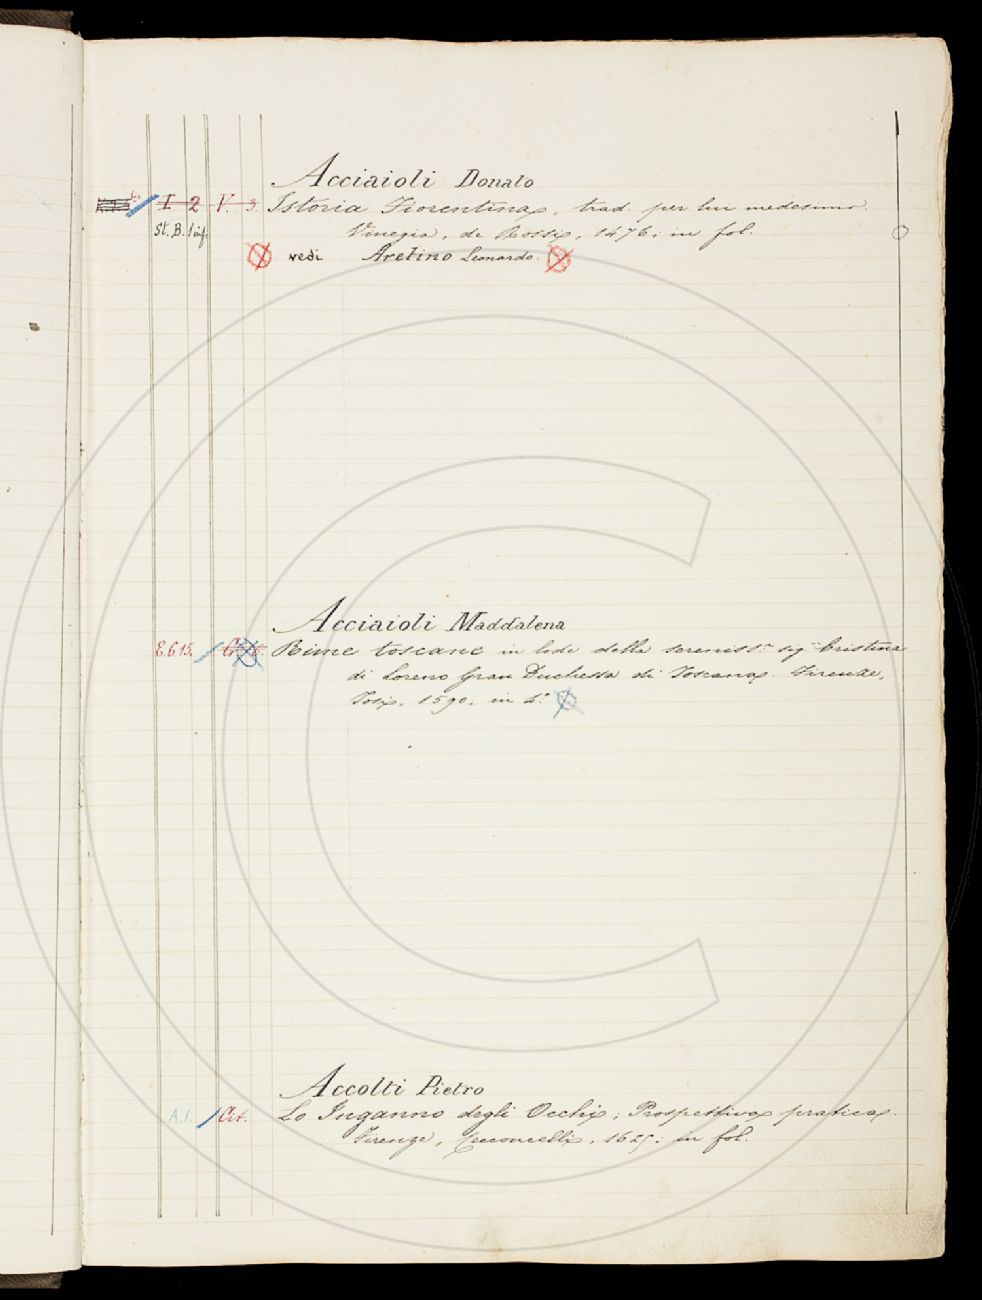 Acciaioli Donato
I 2 V. 3. Istoria Fiorentina, trad. per lui medesimo.
St. B. 1 inf. Vinegia, de Rossi, 1476; in fol.
vedi Aretino Leonardo.
Acciaioli Maddalena
E.6.15. Rime toscane in lode della sereniss.ª sig.ª Cristina
di Loreno Gran Duchessa di Toscana. Firenze,
Tosi, 1590, in 4.º
Accolti Pietro
A.1. Cit. Lo Inganno degli Occhi; Prospettiva pratica.
Firenze, Cecconcelli, 1625; in fol.